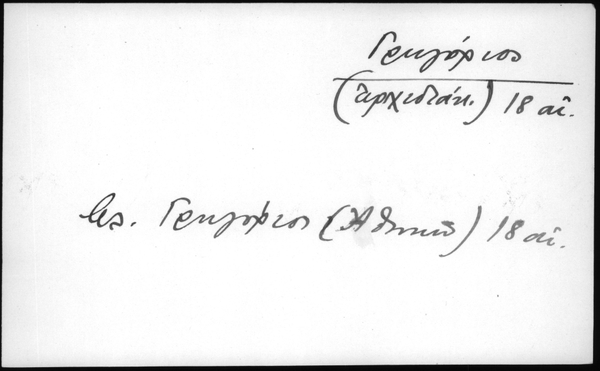 Γρηγόριος
(ἀρχιδιάκ.) 18 αἰ.
βλ. Γρηγόριος (Ἀθηνῶν) 18 αἰ.